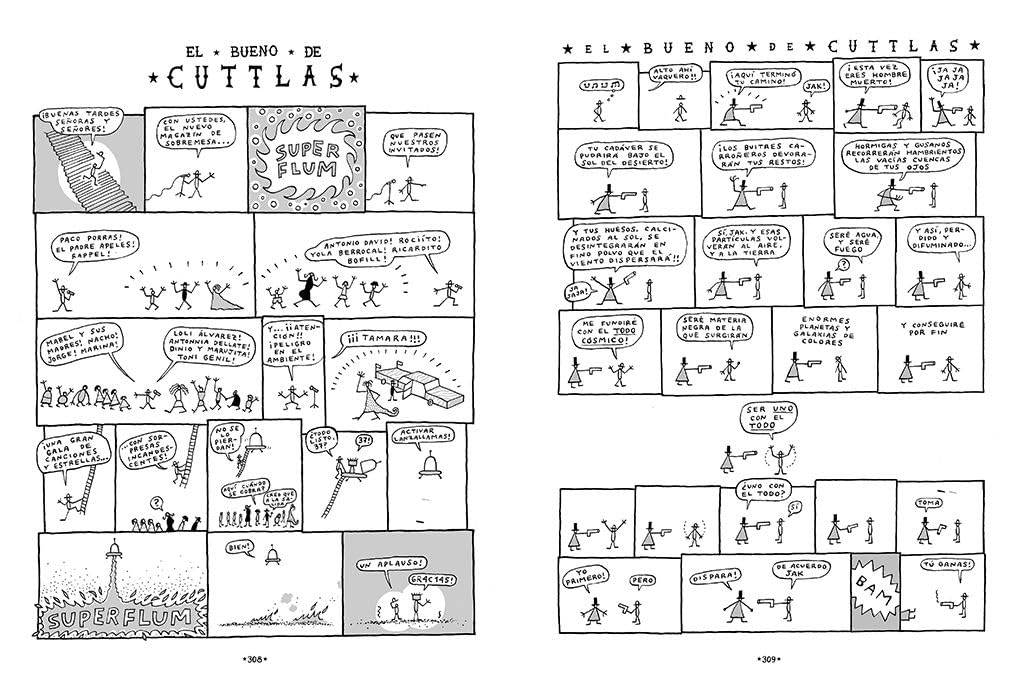 EL ★ BUENO ★ DE
★CUTTLAS★
¡BUENAS TARDES
SEÑORAS Y
SEÑORES!
CON USTEDES,
EL NUEVO
MAGAZÍN DE
SOBREMESA...
SUPER
FLUM
QUE PASEN
NUESTROS
INVITADOS!
PACO PORRAS!
EL PADRE APELES!
RAPPEL!
ANTONIO DAVID! ROCIÍTO!
YOLA BERROCAL! RICARDITO
BOFILL!
MABEL Y SUS
MADRES! NACHO!
JORGE! MARINA!
LOLI ÁLVAREZ!
ANTONNIA DELLATE!
DINIO Y MARUJITA!
TONI GENIL!
Y... ¡¡ATEN-
CIÓN!!
¡PELIGRO
EN EL
AMBIENTE!
¡¡¡TAMARA!!!
¡UNA GRAN
GALA DE
CANCIONES
Y ESTRELLAS...
...CON SOR-
PRESAS
INCANDES-
CENTES!
?
¡NO SE
LO
PIER-
DAN!
AQUÍ CUÁNDO
SE COBRA?
CREO QUE
A LA SA-
LIDA
¿TODO
LISTO,
37?
37!
ACTIVAR
LANZALLAMAS!
SUPERFLUM
BIEN!
UN APLAUSO!
GR4C14S!
★308★
★EL★BUENO★DE★CUTTLAS★
ALTO AHÍ
VAQUERO!!
¡AQUÍ TERMINÓ
TU CAMINO!
JAK!
¡ESTA VEZ
ERES HOMBRE
MUERTO!
¡JA JA
JA JA
JA!
TU CADÁVER SE
PUDRIRÁ BAJO EL
SOL DEL DESIERTO!
¡LOS BUITRES CA-
RROÑEROS DEVORA-
RÁN TUS RESTOS!
HORMIGAS Y GUSANOS
RECORRERÁN HAMBRIENTOS
LAS VACÍAS CUENCAS
DE TUS OJOS
Y TUS HUESOS, CALCI-
NADOS AL SOL, SE
DESINTEGRARÁN EN
FINO POLVO QUE EL
VIENTO DISPERSARÁ!!
JA
JAJA!
SÍ, JAK. Y ESAS
PARTÍCULAS VOL-
VERÁN AL AIRE,
Y A LA TIERRA
SERÉ AGUA,
Y SERÉ
FUEGO
?
Y ASÍ, PER-
DIDO Y
DIFUMINADO...
ME FUNDIRÉ
CON EL TODO
CÓSMICO!
SERÉ MATERIA
NEGRA DE LA
QUE SURGIRÁN
ENORMES
PLANETAS Y
GALAXIAS DE
COLORES
Y CONSEGUIRÉ
POR FIN
SER UNO
CON EL
TODO
¿UNO CON
EL TODO?
SÍ
TOMA
YO
PRIMERO!
PERO
DISPARA!
DE ACUERDO
JAK
BAM
TÚ GANAS!
★309★